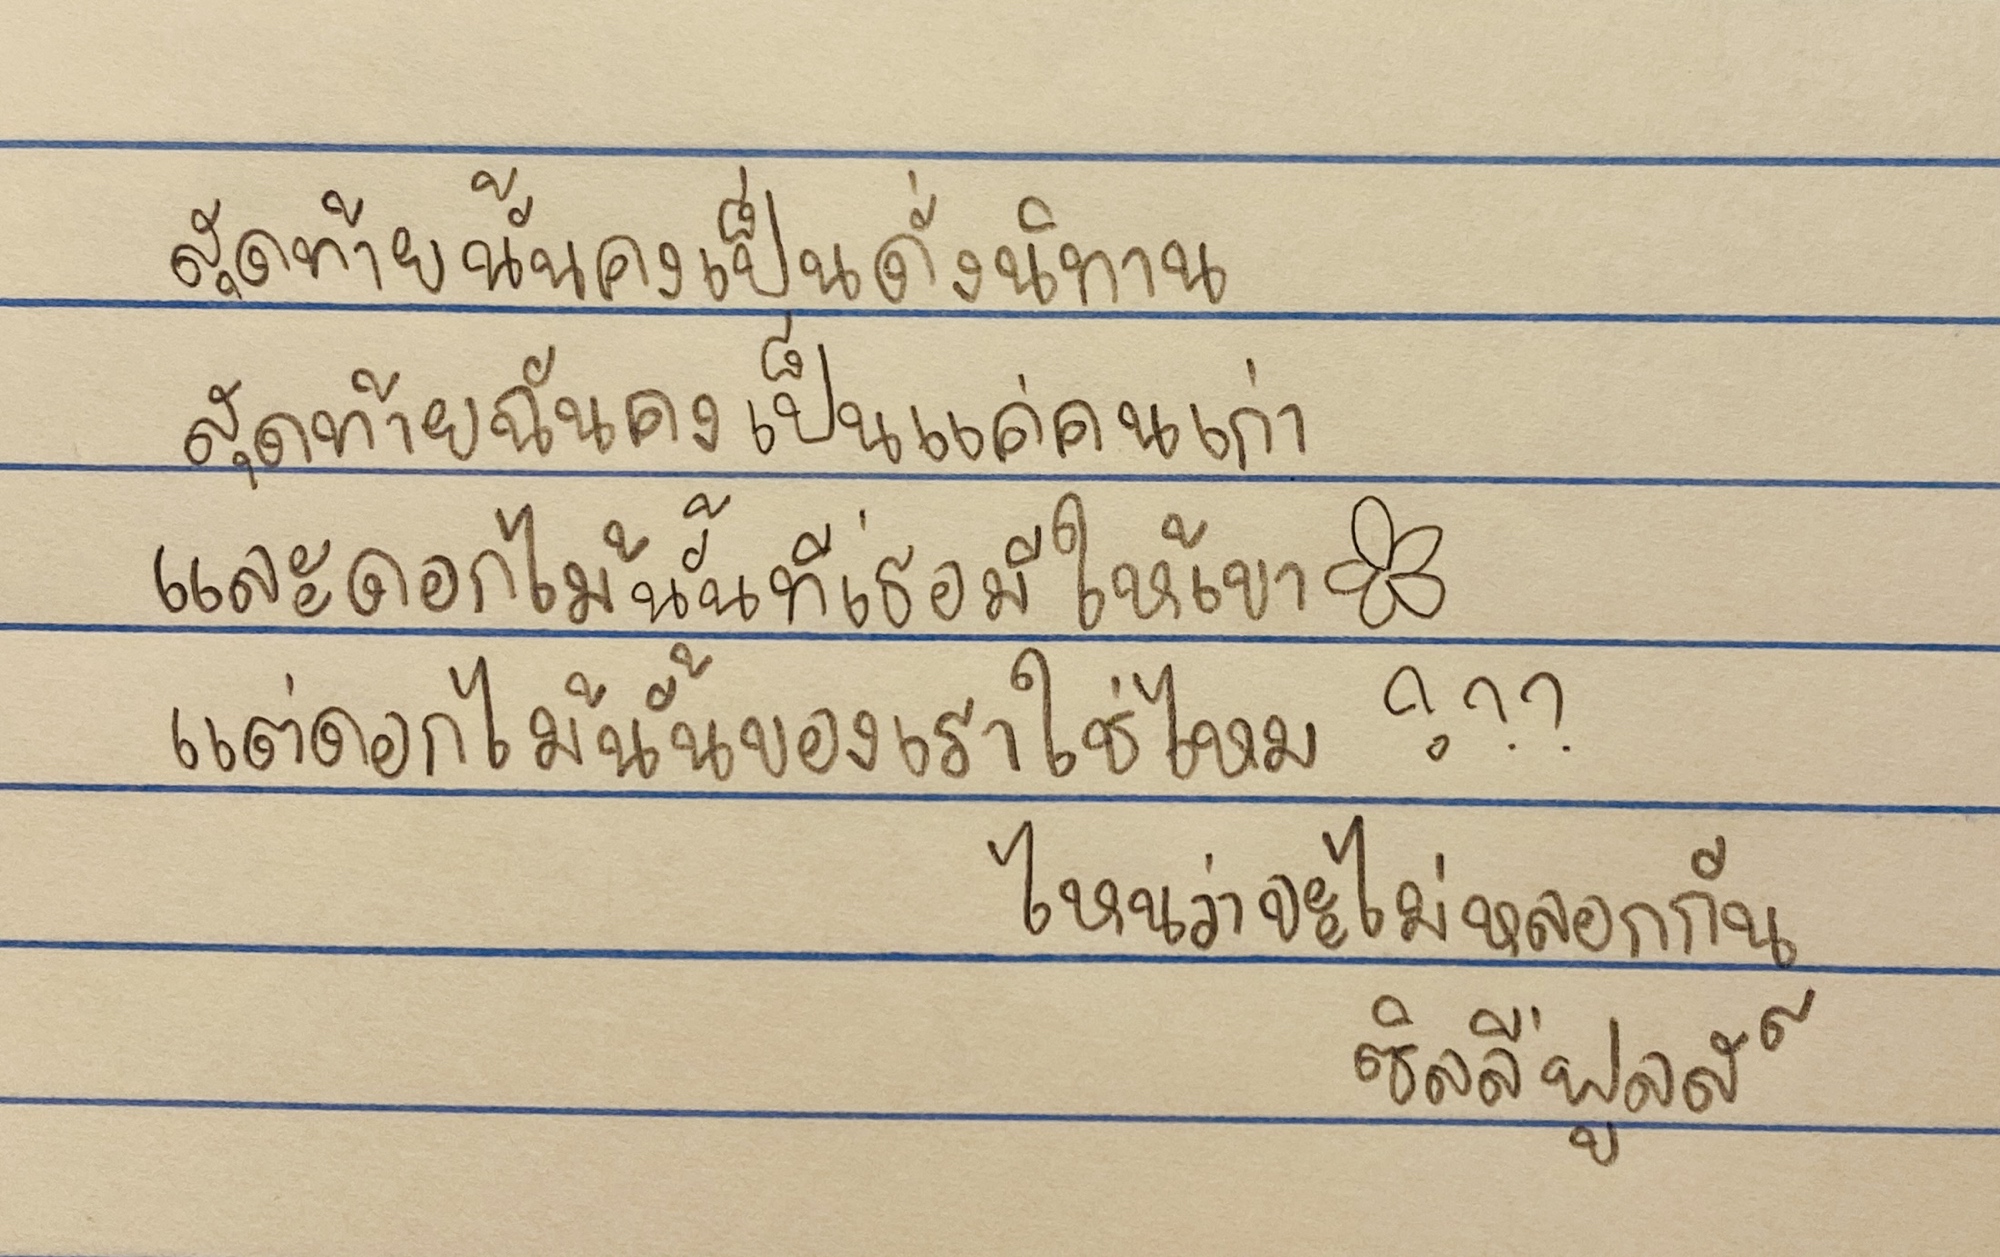 สุดท้ายนั้นคงเป็นดั่งนิทาน
สุดท้ายฉันคงเป็นแค่คนเก่า
และดอกไม้นั้นที่เธอมีให้เขา
แต่ดอกไม้นั้นของเราใช่ไหม ???
ไหนว่าจะไม่หลอกกัน
ซิลลี่ฟูลส์